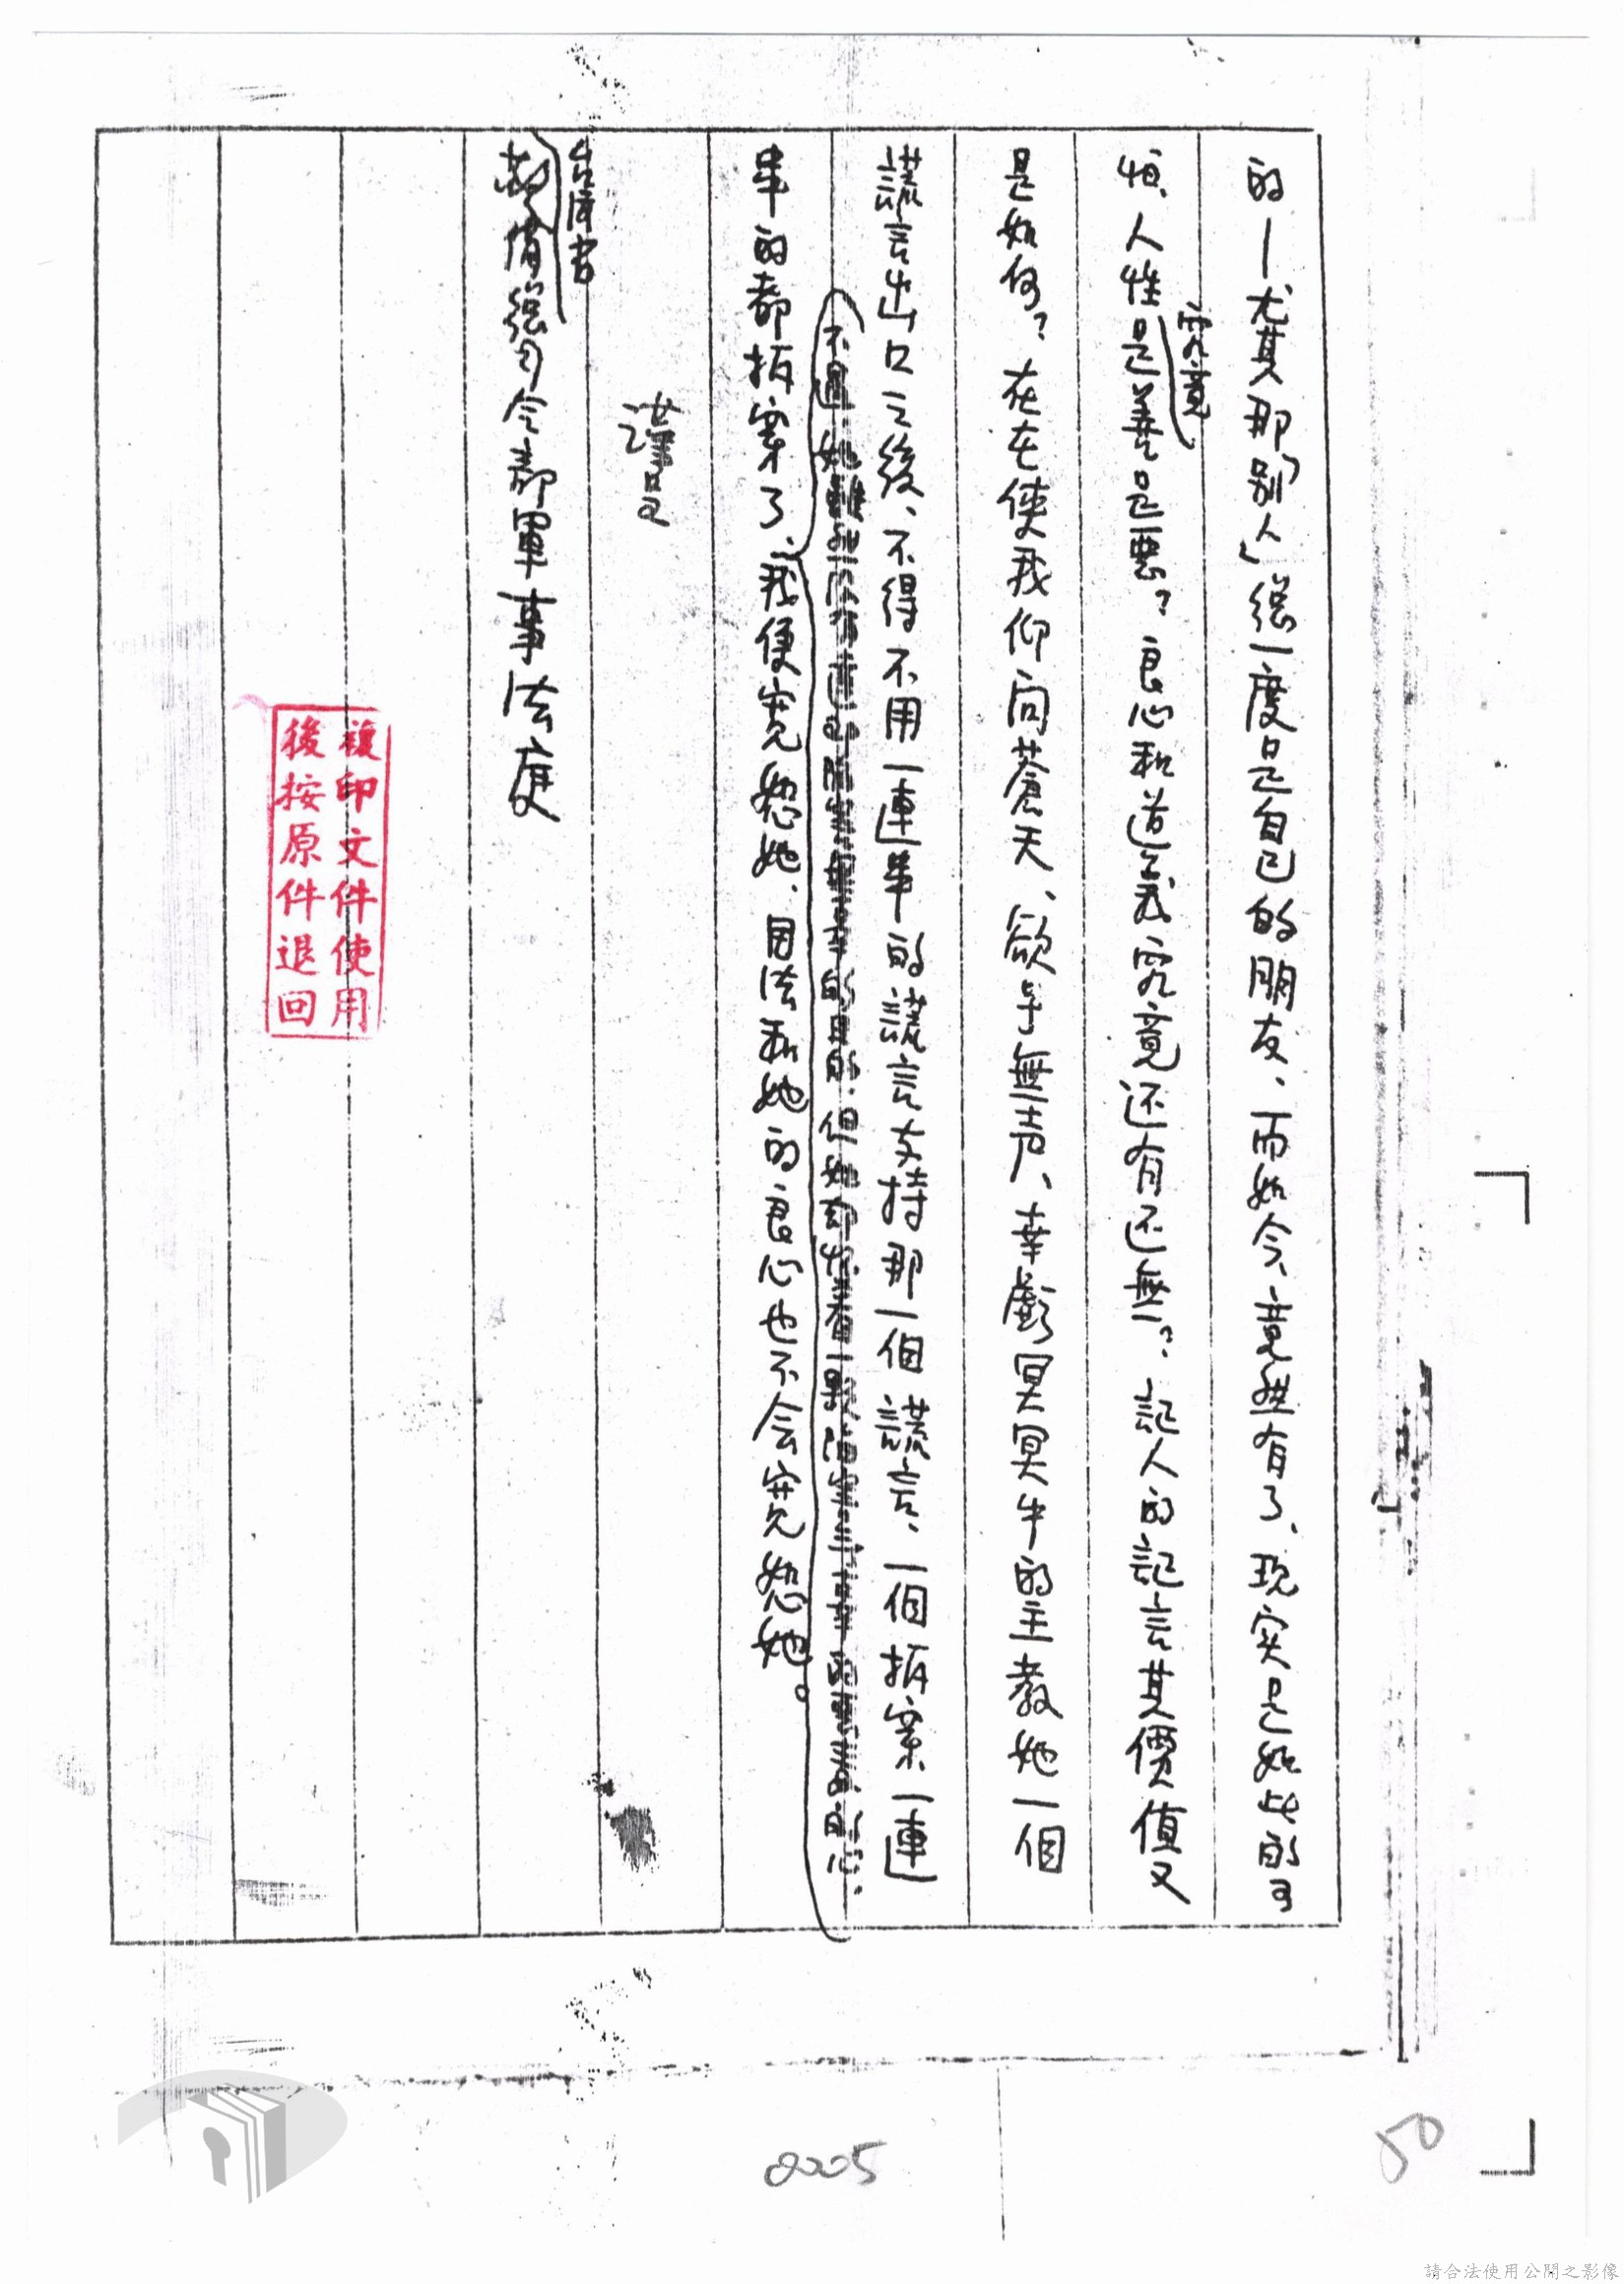 的－尤其那「別人」縱一度是自己的朋友、而如今、竟然有了、現实是如此的可
怕、人性究竟是善是惡？良心和道義究竟还有还無？記人的記言其價值又
是如何？在在使我仰问蒼天、欲乎無声、幸戲冥冥中的主教她一個
謊言出口之後、不得不用一連串的謊言支持那一個謊言、一個拆穿一連
不過、她雖然 的目的、但她却 着一顆 的心、
串的都拆穿了、我便宽恕她、国法和她的良心也不会宽恕她。
謹呈
台湾省
警備總司令部軍事法庭
複印文件使用
後按原件退回
0005
50
請合法使用公開之影像